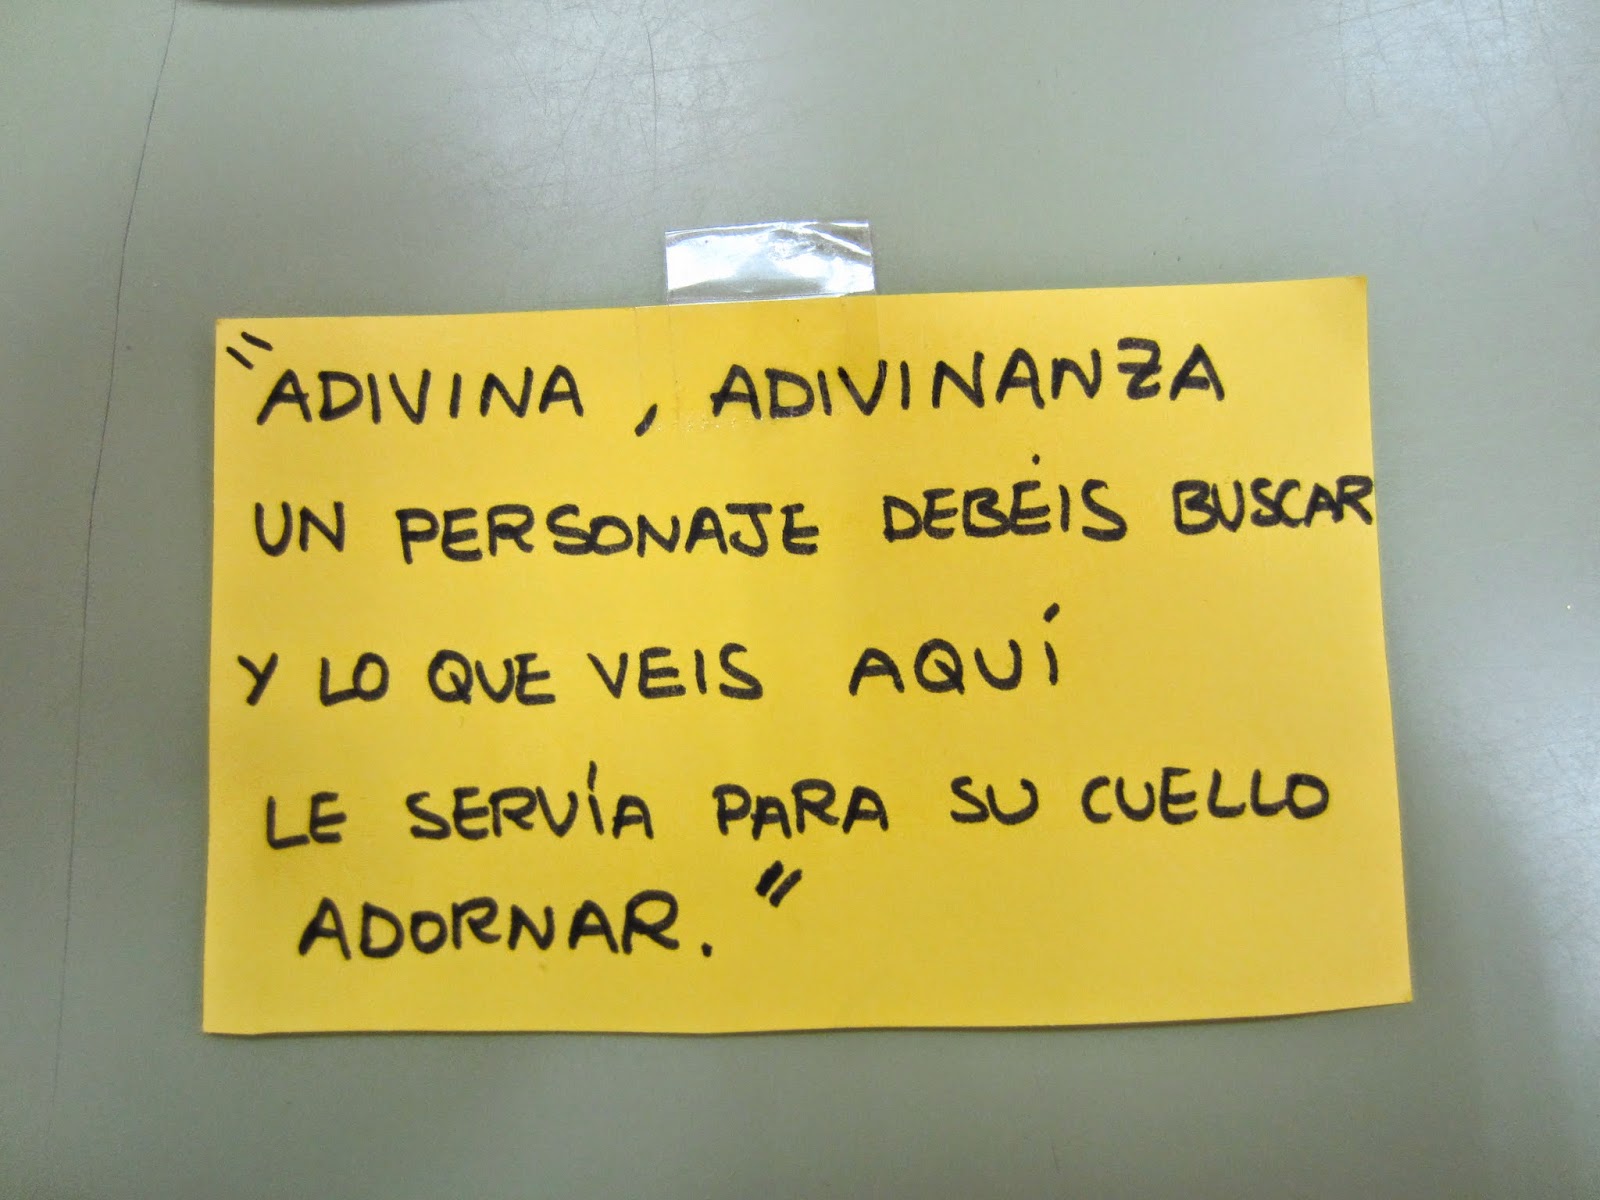 "ADIVINA, ADIVINANZA
UN PERSONAJE DEBÉIS BUSCAR
Y LO QUE VEIS AQUÍ
LE SERVÍA PARA SU CUELLO
ADORNAR."